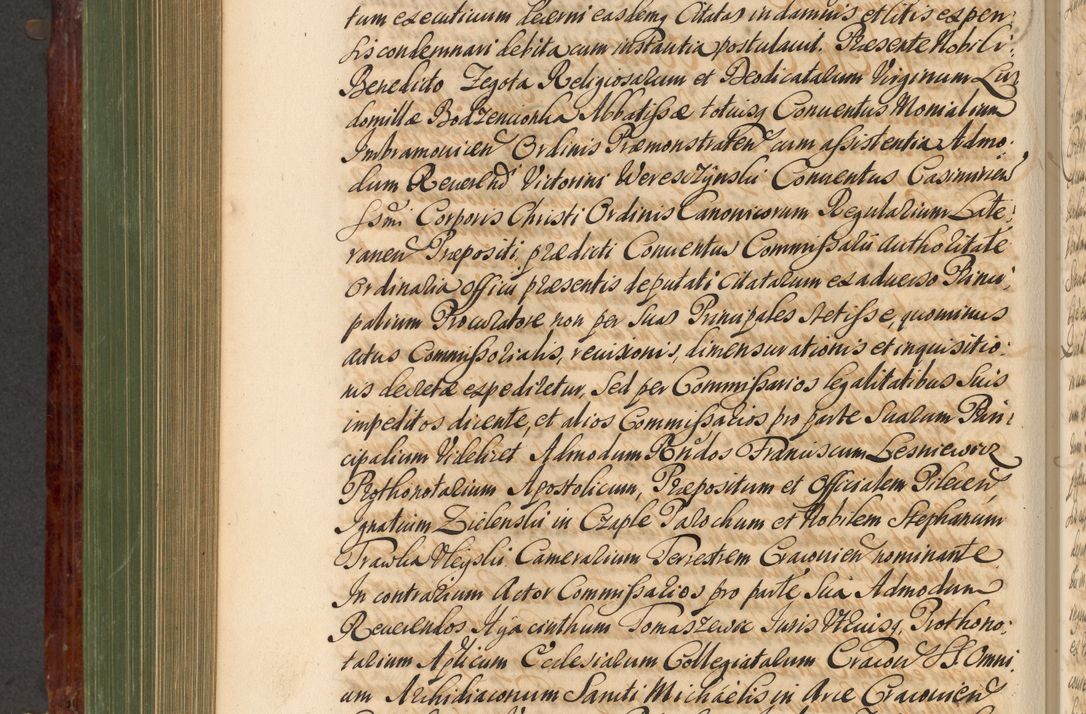 tum executivum decerni easdemq Citatas in damnis et litis expen
sis condemnari debita cum instantia postulavit. Præsente Nobili
Benedicto Zegota Religiosarum et Deodicatarum Virginum Lu
domillæ Bodzencionka Abbatissæ totiusq Conventus Monialium
Imbramovicen Ordinis Præmonstraten cum assistentia Admo
dum Reverend Victorini Wereszczynski Conventus Casimirien
Ssmi Corporis Christi Ordinis Canonicorum Regularium Late
ranen Præpositi prædicti Conventus Commissarii authoritate
ordinaria officii præsentis deputati Citatarum ex adverso Princi
palium Procuratore non per suas Principales stetisse, quominus
actus Commissorialis, revisionis, dimensurationis et inquisitio
nis decretæ expediretur, sed per Commissarios legalitatibus suis
impeditos dicente, et alios Commissarios pro parte suarum Prin
cipalium Videlicet Admodum Rndos Franciscum Lesniewicz
Prothonotarium Apostolicum, Præpositum et Officialem Pilecen
Ignatium Zielenski in Czaple Parochum et Nobilem Stephanum
Trawka Cameralium Terrestrem Cracovien nominante
In contrarium Actor Commissarios pro parte sua Admodum
Reverendos Hyacinthum Tomaszewic Iuris Utriusq, Prothono
tarium Aplicum Ecclesiarum Collegiatarum Cracov SS Omni
um Archidiaconum Sancti Michaelis in Arce Cracovien